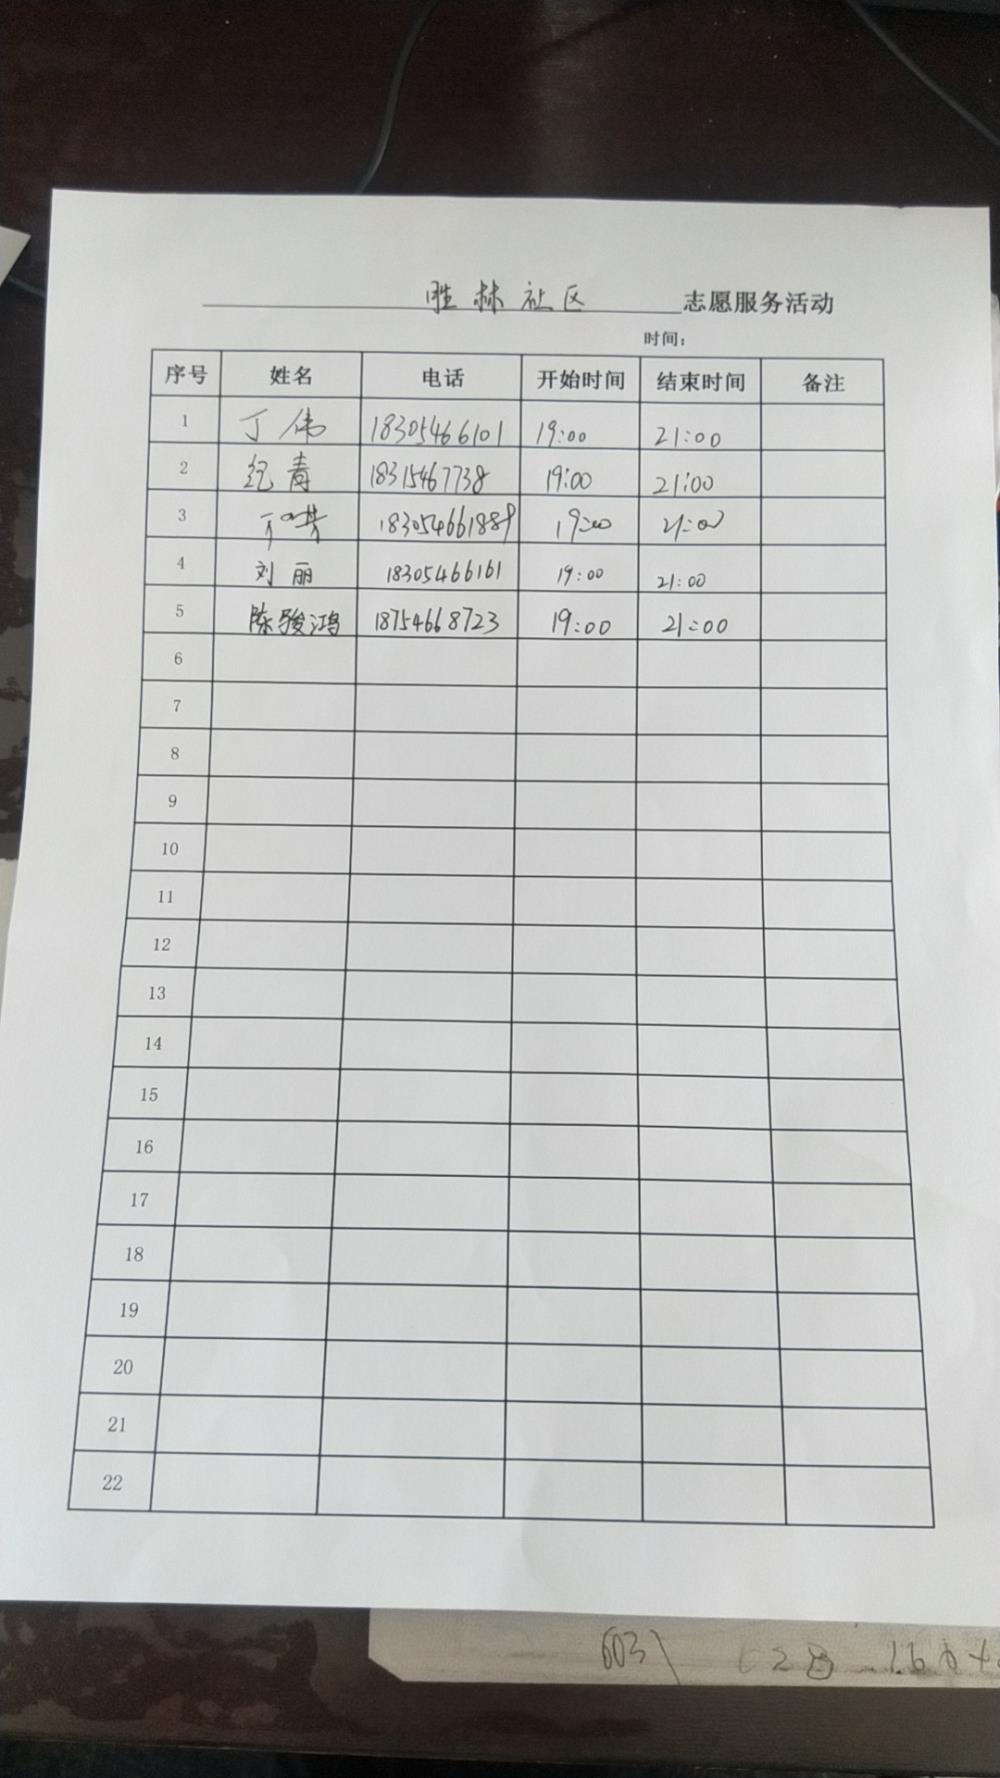 胜林社区 志愿服务活动
时间：
序号 姓名 电话 开始时间 结束时间 备注
1 丁伟 18305466101 19:00 21:00
2 纪青 18315467738 19:00 21:00
3 183054661889 19:00 21:00
4 刘丽 18305466161 19:00 21:00
5 陈骏鸿 18754668723 19:00 21:00
6
7
8
9
10
11
12
13
14
15
16
17
18
19
20
21
22
603